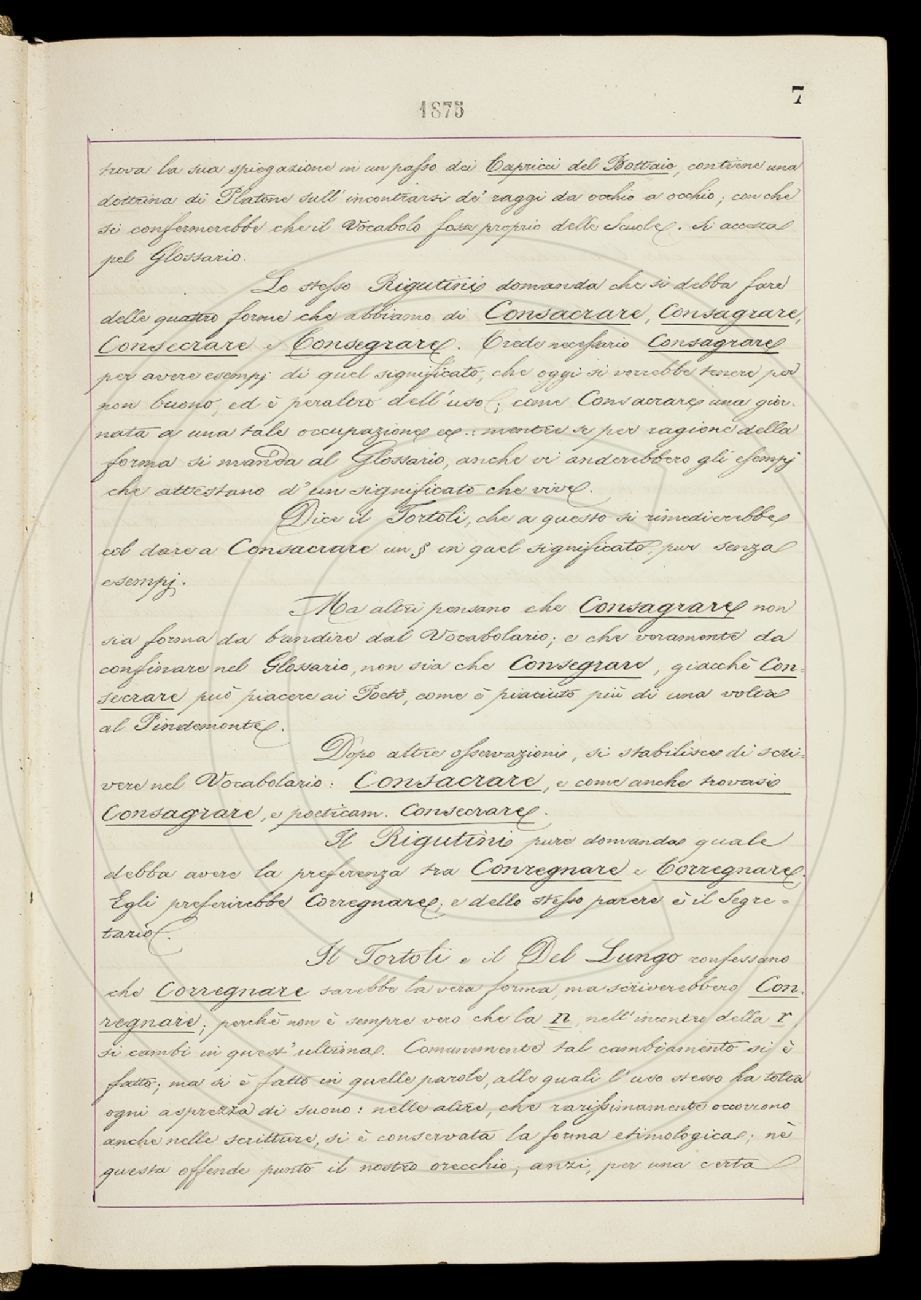 1875
7
trova la sua spiegazione in un passo dei Capricci del Bottaio, contiene una
dottrina di Platone sull'incontrarsi de' raggi da occhio a occhio; con che
si confermerebbe che il Vocabolo fosse proprio delle Scuole. Si accetta
pel Glossario.
Lo stesso Rigutini domanda che si debba fare
delle quattro forme che abbiamo di Consacrare, Consagrare,
Consecrare e Consegrare. Crede necessario Consagrare
per avere esempj di quel significato, che oggi si vorrebbe tenere per
non buono, ed è peraltro dell'uso; come Consacrare una gior-
nata a una tale occupazione ec.: mentre se per ragione della
forma si manda al Glossario, anche vi anderebbero gli esempj
che attestano d'un significato che vive.
Dice il Tortoli, che a questo si rimedierebbe
col dare a Consacrare un § in quel significato, pur senza
esempj.
Ma altri pensano che Consagrare non
sia forma da bandire dal Vocabolario; e che veramente da
confinare nel Glossario, non sia che Consegrare, giacchè Con-
secrare può piacere ai Poeti, come è piaciuto più di una volta
al Pindemonte.
Dopo altre osservazioni, si stabilisce di scri-
vere nel Vocabolario: Consacrare, e come anche trovasi
Consagrare, e poeticam. Consecrare.
Il Rigutini pure domanda quale
debba avere la preferenza tra Conregnare e Corregnare.
Egli preferirebbe Corregnare; e dello stesso parere è il Segre-
tario.
Il Tortoli e il Del Lungo confessano
che Corregnare sarebbe la vera forma, ma scriverebbero Con-
regnare; perchè non è sempre vero che la n, nell'incontro della r,
si cambi in quest'ultima. Comunemente tal cambiamento si è
fatto; ma si è fatto in quelle parole, alle quali l'uso stesso ha tolta
ogni asprezza di suono: nelle altre, che rarissimamente occorrono
anche nelle scritture, si è conservata la forma etimologica; nè
questa offende punto il nostro orecchio; anzi, per una certa